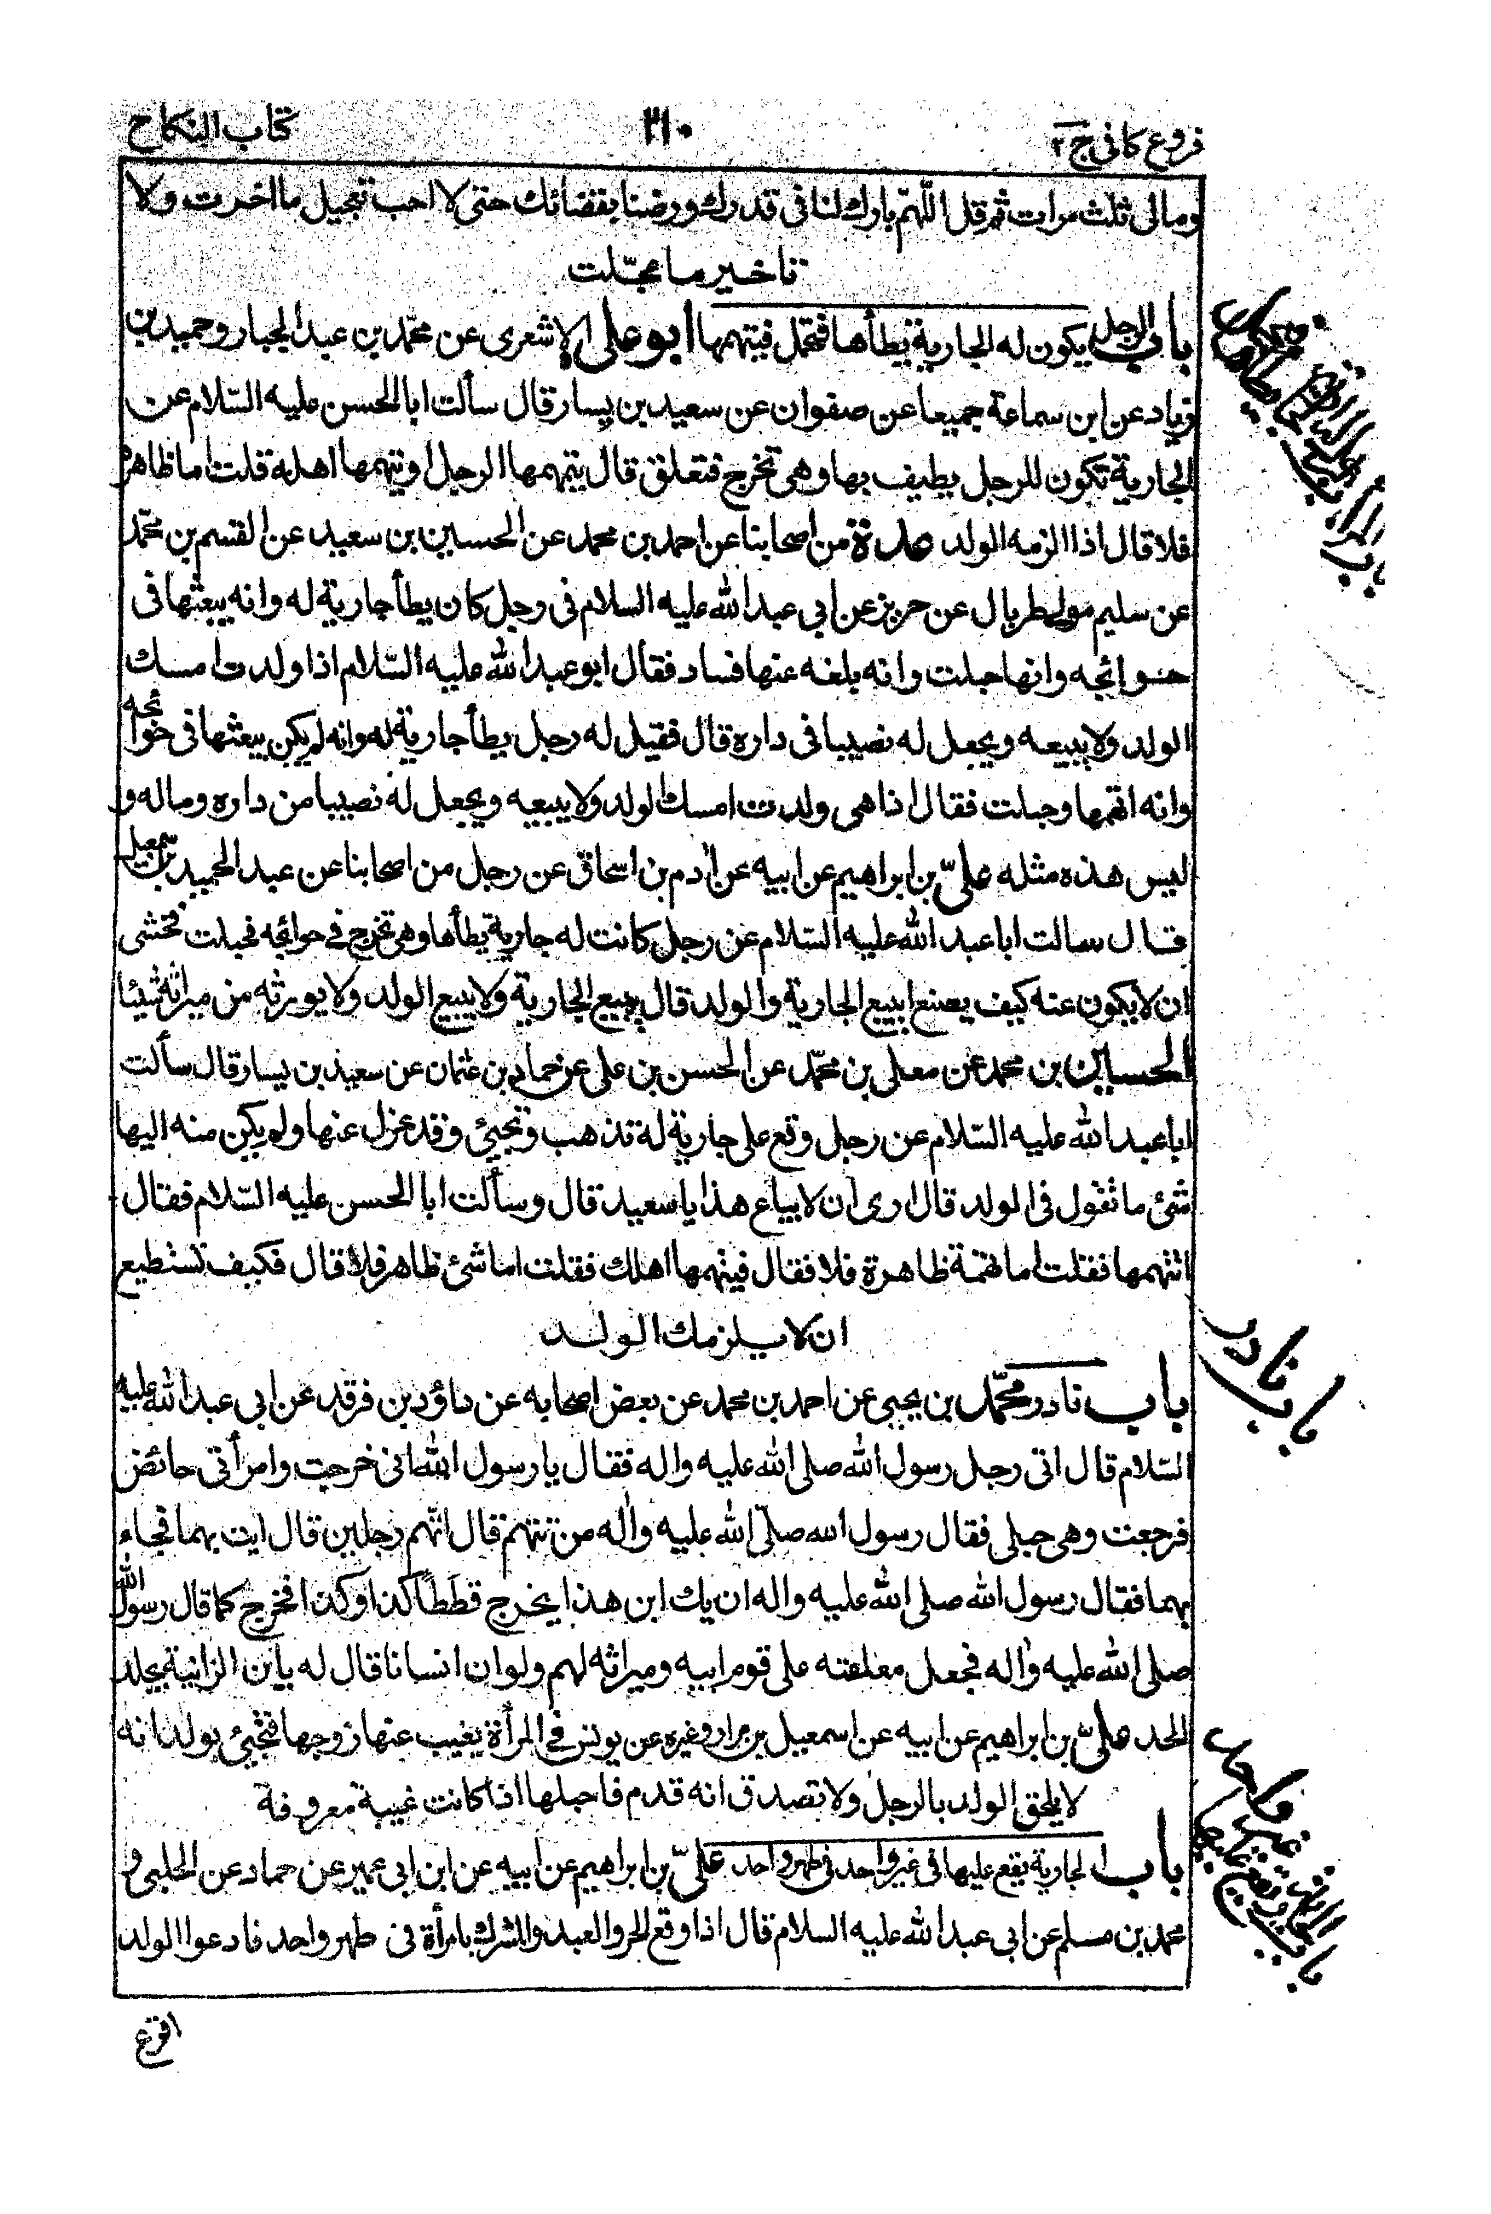 فروع كافى ج ٢
٣١٠
كتاب النكاح
ومالى ثلث مرات ثم قل اللّهمّ بارك لنا فى قدرك ورضنا بقضائك حتى لا احب تعجيل ما اخرت ولا
تاخير ما عجّلت
باب الرجل يكون له الجارية يطأها فتحمل فيتهمها ابو على الاشعرى عن محمّد بن عبد الجبار وحميد بن
زياد عن ابن سماعة جميعا عن صفوان عن سعيد بن يسار قال سألت ابا الحسن عليه السّلام عن
الجارية تكون للرجل يطيف بها وهى تخرج فتعلق قال يتهمها الرجل او يتهمها اهله قلت اما ظاهرة
فلا قال اذا الزمه الولد عدة من اصحابنا عن احمد بن محمد عن الحسين بن سعيد عن القسم بن محمّد
عن سليم مولى طربال عن حريز عن ابي عبد الله عليه السلام فى رجل كان يطأ جارية له وانه يبعثها فى
حوائجه وانها حبلت وانه بلغه عنها فساد فقال ابو عبد الله عليه السّلام اذا ولدت امسك
الولد ولا يبيعه ويجعل له نصيبا فى داره قال فقيل له رجل يطأ جارية له وانه لم يكن يبعثها فى حوائجه
وانه اتهمها وحبلت فقال اذا هى ولدت امسك الولد ولا يبيعه ويجعل له نصيبا من داره وماله و
ليس هذه مثل هذه علىّ بن ابراهيم عن ابيه عن ادم بن اسحاق عن رجل من اصحابنا عن عبد الحميد بن اسمعيل
قال سالت ابا عبد الله عليه السّلام عن رجل كانت له جارية يطأها وهى تخرج فى حوائجه فحبلت فخشى
ان لا يكون عنه كيف يصنع ايبيع الجارية والولد قال يبيع الجارية ولا يبيع الولد ولا يورثه من ميراثه شيئا
الحسين بن محمد عن معلى بن محمّد عن الحسن بن على عن حماد بن عثمان عن سعيد بن يسار قال سألت
ابا عبد الله عليه السّلام عن رجل وقع على جارية له تذهب وتجيئ وقد عزل عنها ولم يكن منه اليها
شئ ما تقول فى الولد قال ارى ان لا يباع هذا يا سعيد قال وسألت ابا الحسن عليه السّلام فقال
اتتهمها فقلت اما تهمة ظاهرة فلا فقال فيتهمها اهلك فقلت اما شئ ظاهر فلا قال فكيف تستطيع
ان لا يلزمك الولد
باب نادر محمّد بن يحيى عن احمد بن محمد عن بعض اصحابه عن داؤد بن فرقد عن ابي عبد الله عليه
السّلام قال اتى رجل رسول الله صلى الله عليه واله فقال يا رسول الله انى خرجت وامرأتى حائض
فرجعت وهى حبلى فقال رسول الله صلّى الله عليه واله من تتهم قال اتّهم رجلين قال ايت بهما فجاء
بهما فقال رسول الله صلى الله عليه واله ان يك ابن هذا يخرج قططا كذا وكذا فخرج كما قال رسول الله
صلى الله عليه واله فجعل معقلته على قوم ابيه وميراثه لهم ولو ان انسانا قال له يا بن الزانية يجلد
الحد علىّ بن ابراهيم عن ابيه عن اسمعيل بن مرار وغيره عن يونس فى المرأة يغيب عنها زوجها فتجيئ بولد انه
لا يلحق الولد بالرجل ولا تصدق انه قدم فاحبلها اذا كانت غيبة معروفة
باب الجارية يقع عليها فى غير واحد فى طهر واحد علىّ بن ابراهيم عن ابيه عن ابن ابى عمير عن حماد عن الحلبى و
محمد بن مسلم عن ابى عبد الله عليه السلام قال اذا وقع الحر والعبد والمشرك بامرأة فى طهر واحد فادعوا الولد
اقرع
باب نادر